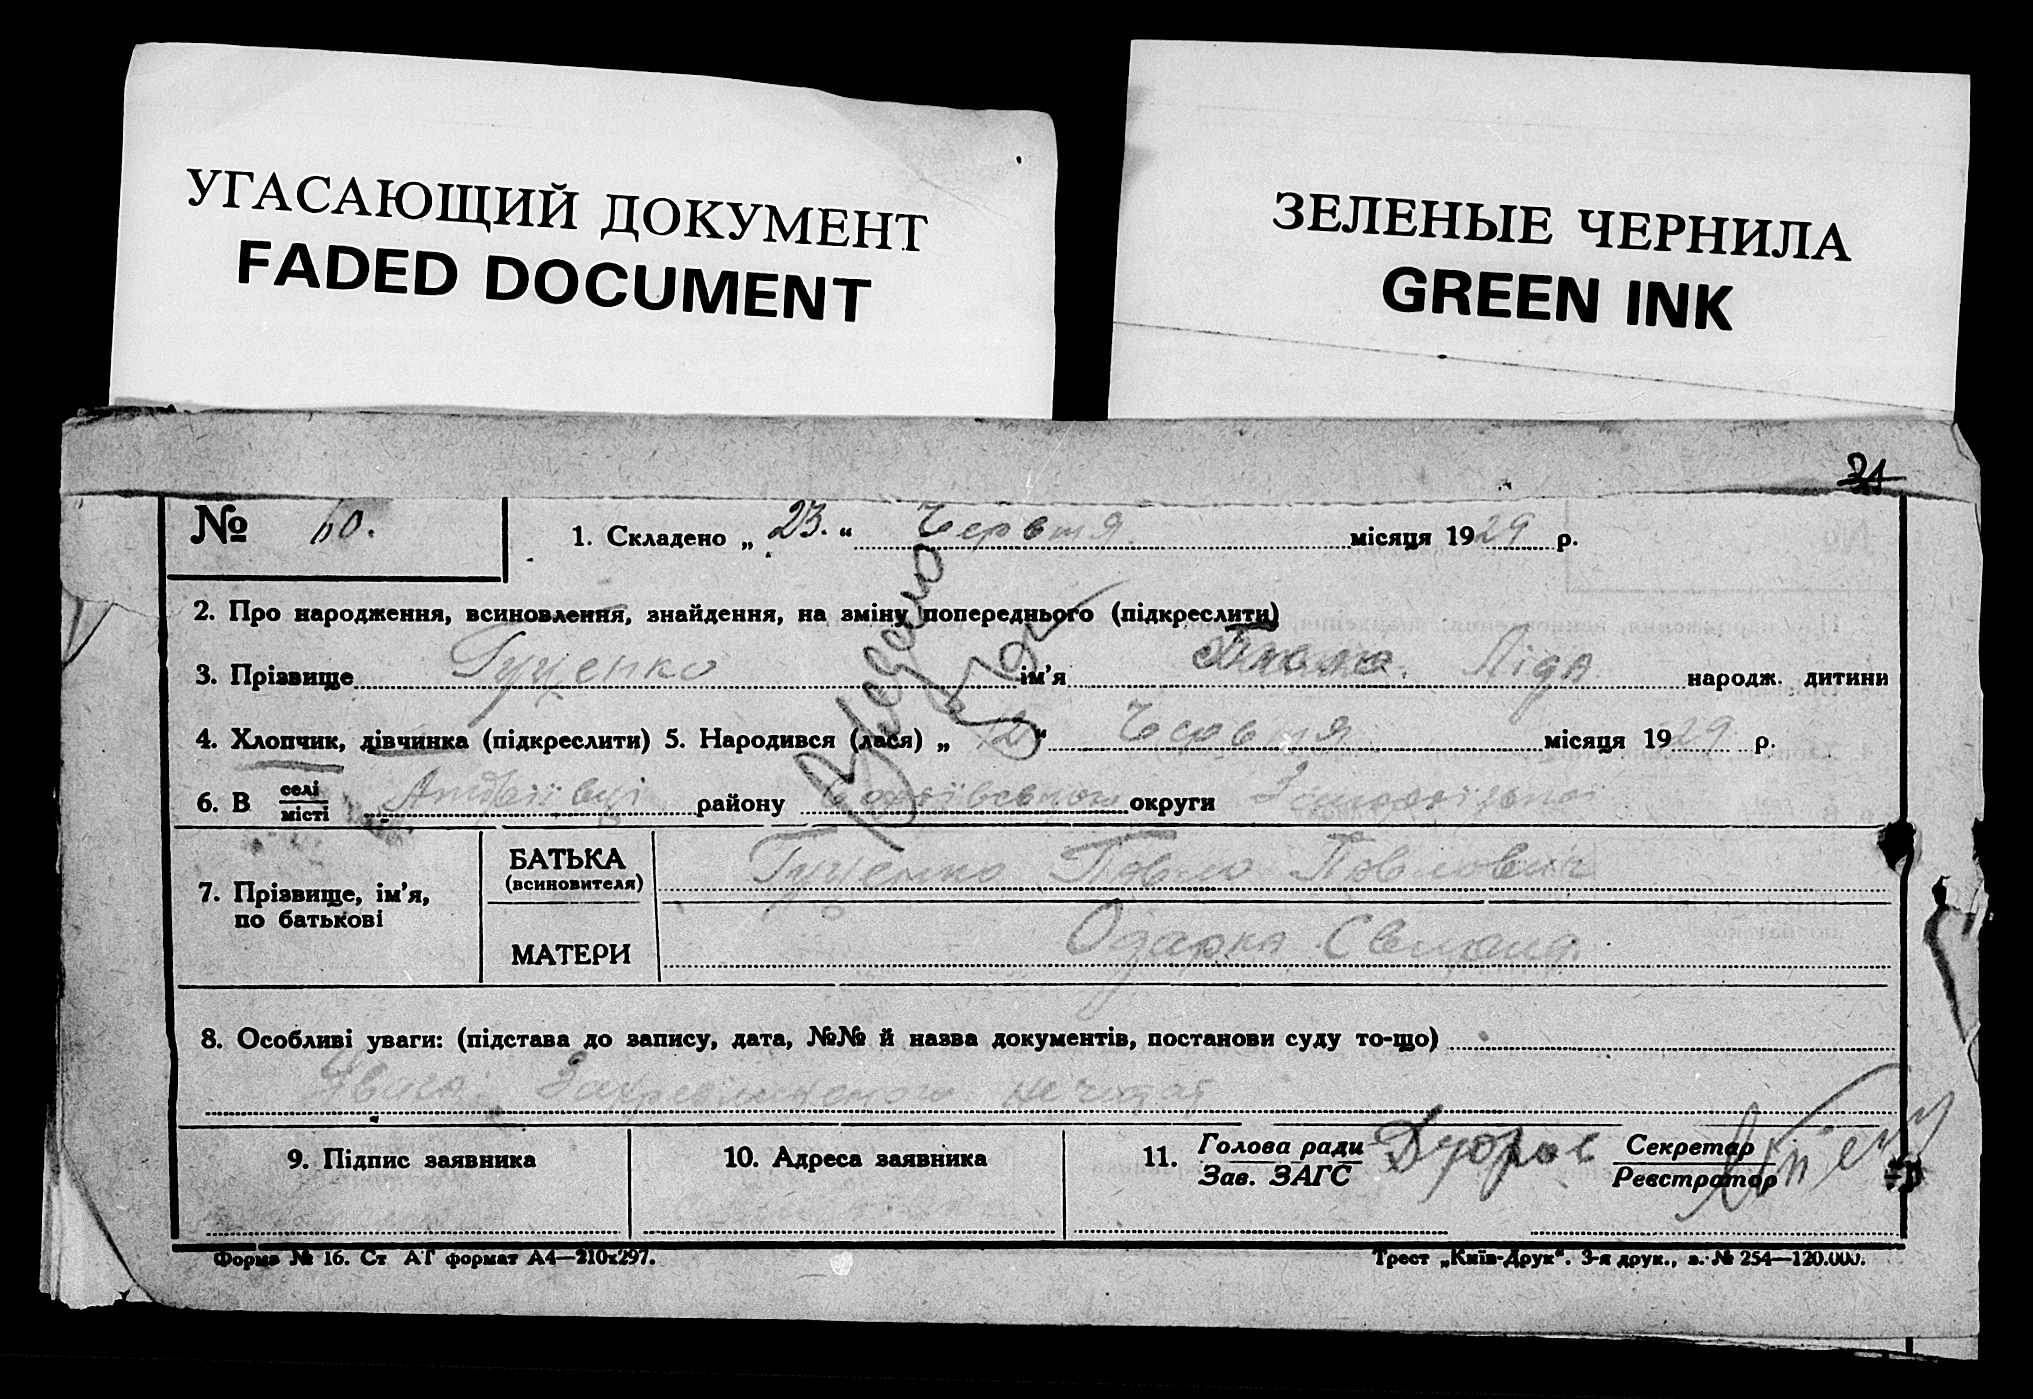 УГАСАЮЩИЙ ДОКУМЕНТ
FADED DOCUMENT
ЗЕЛЕНЫЕ ЧЕРНИЛА
GREEN INK
21
№ 60. 1. Складено „ 23. “ Червтя місяця 1929 р.
2. Про народження, всиновлення, знайдення, на зміну попереднього (підкреслити)
3. Прізвище Гуценко ім'я Ліда народж. дитини
4. Хлопчик, дівчинка (підкреслити) 5. Народився (лася) „ 12 “ Червтя місяця 1929 р.
6. В селі
місті району округи
Видано
7. Прізвище, ім'я, по батькові
БАТЬКА (всиновителя) Гуценко Павло Павлович
МАТЕРИ Одарка
8. Особливі уваги: (підстава до запису, дата, №№ й назва документів, постанови суду то-що)
не читат
9. Підпис заявника
10. Адреса заявника
11. Голова ради
Зав. ЗАГС
Секретар
Реєстратор
Форма № 16. Ст АГ формат А4—210x297.
Трест „Київ-Друк“. 3-я друк., з. № 254—120.000.